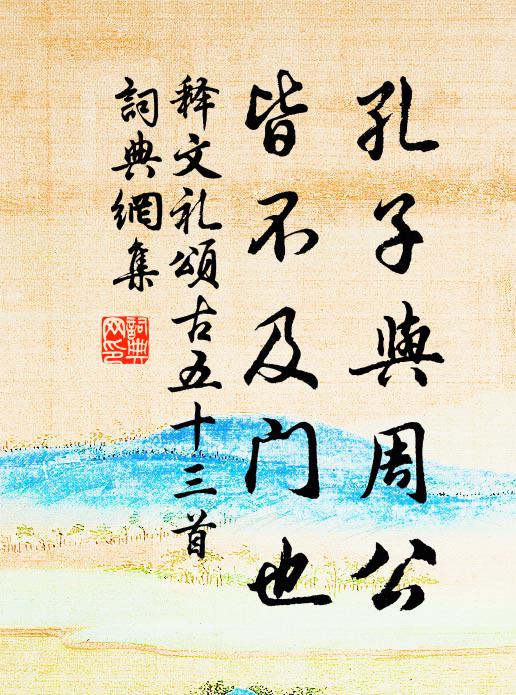 孔子與周公
皆不及门也
释文礼頌古五十三首
詞典網集
詞典
网印